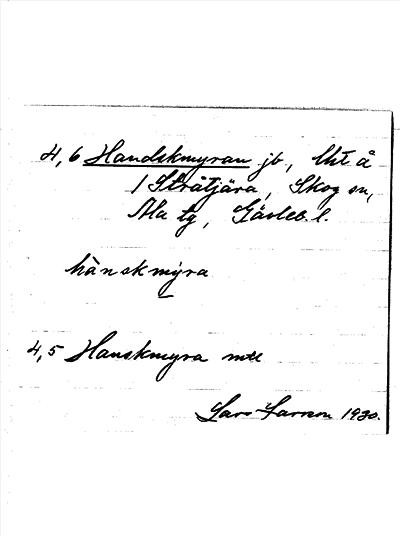 4,6 Handskmyran jb, Utt å
1 Stråtjära, Skog sn,
Ala tg, Gävleb. l.
hànskmýra
4,5 Hanskmyra
Lars Larsson 1930.